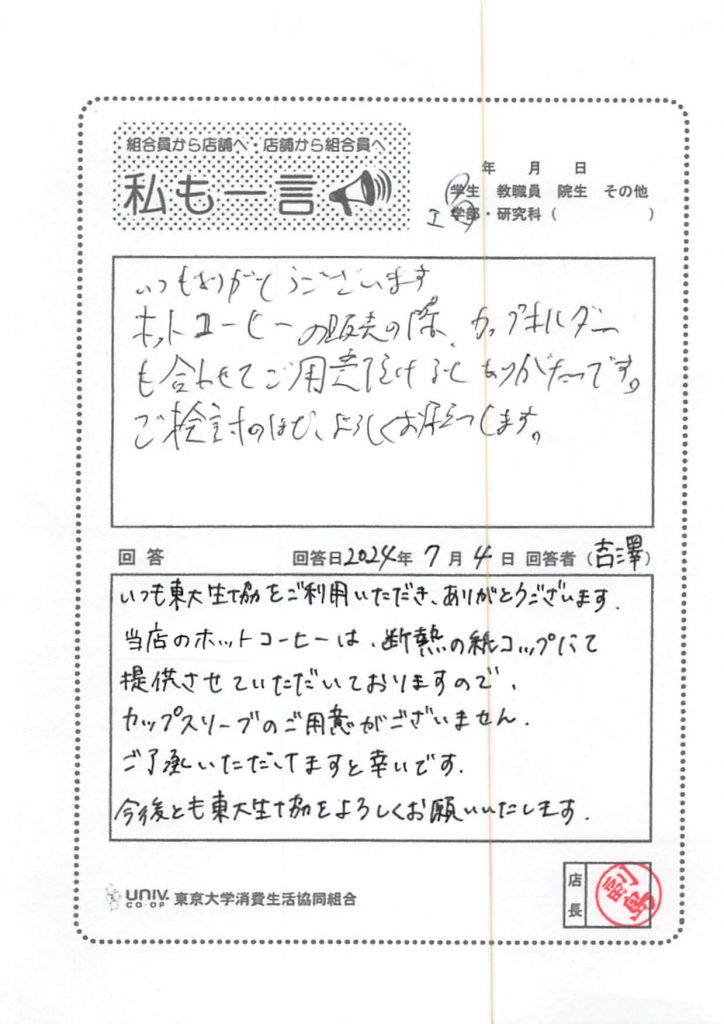 組合員から店舗へ・店舗から組合員へ
私も一言
年 月 日
学生 教職員 院生 その他
工 学部・研究科（ ）
いつもありがとうございます
ホットコーヒーの販売の際、カップホルダー
も合わせてご用意頂けるとありがたいです。
ご検討のほど、よろしくお願いします。
回答 回答日2024年 7月4日 回答者（吉澤）
いつも東大生協をご利用いただき、ありがとうございます.
当店のホットコーヒーは、断熱の紙コップにて
提供させていただいておりますので、
カップスリーブのご用意がございません.
ご了承いただけますと幸いです.
今後とも東大生協をよろしくお願いいたします.
UNIV. CO-OP 東京大学消費生活協同組合
店長